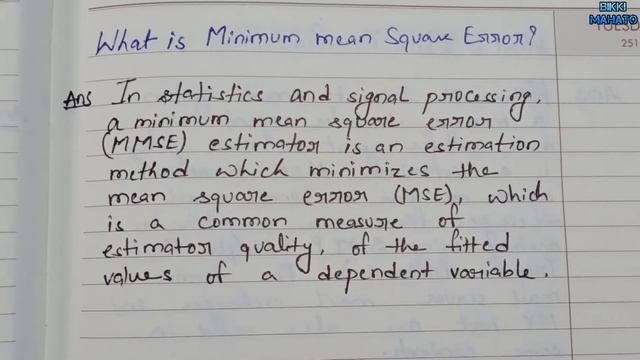 BIKKI
MAHATO
251
What is Minimum mean Square Error?
Ans In statistics and signal processing,
a minimum mean square error
(MMSE) estimator is an estimation
method which minimizes the
mean square error (MSE), which
is a common measure of
estimator quality, of the fitted
values of a dependent variable.